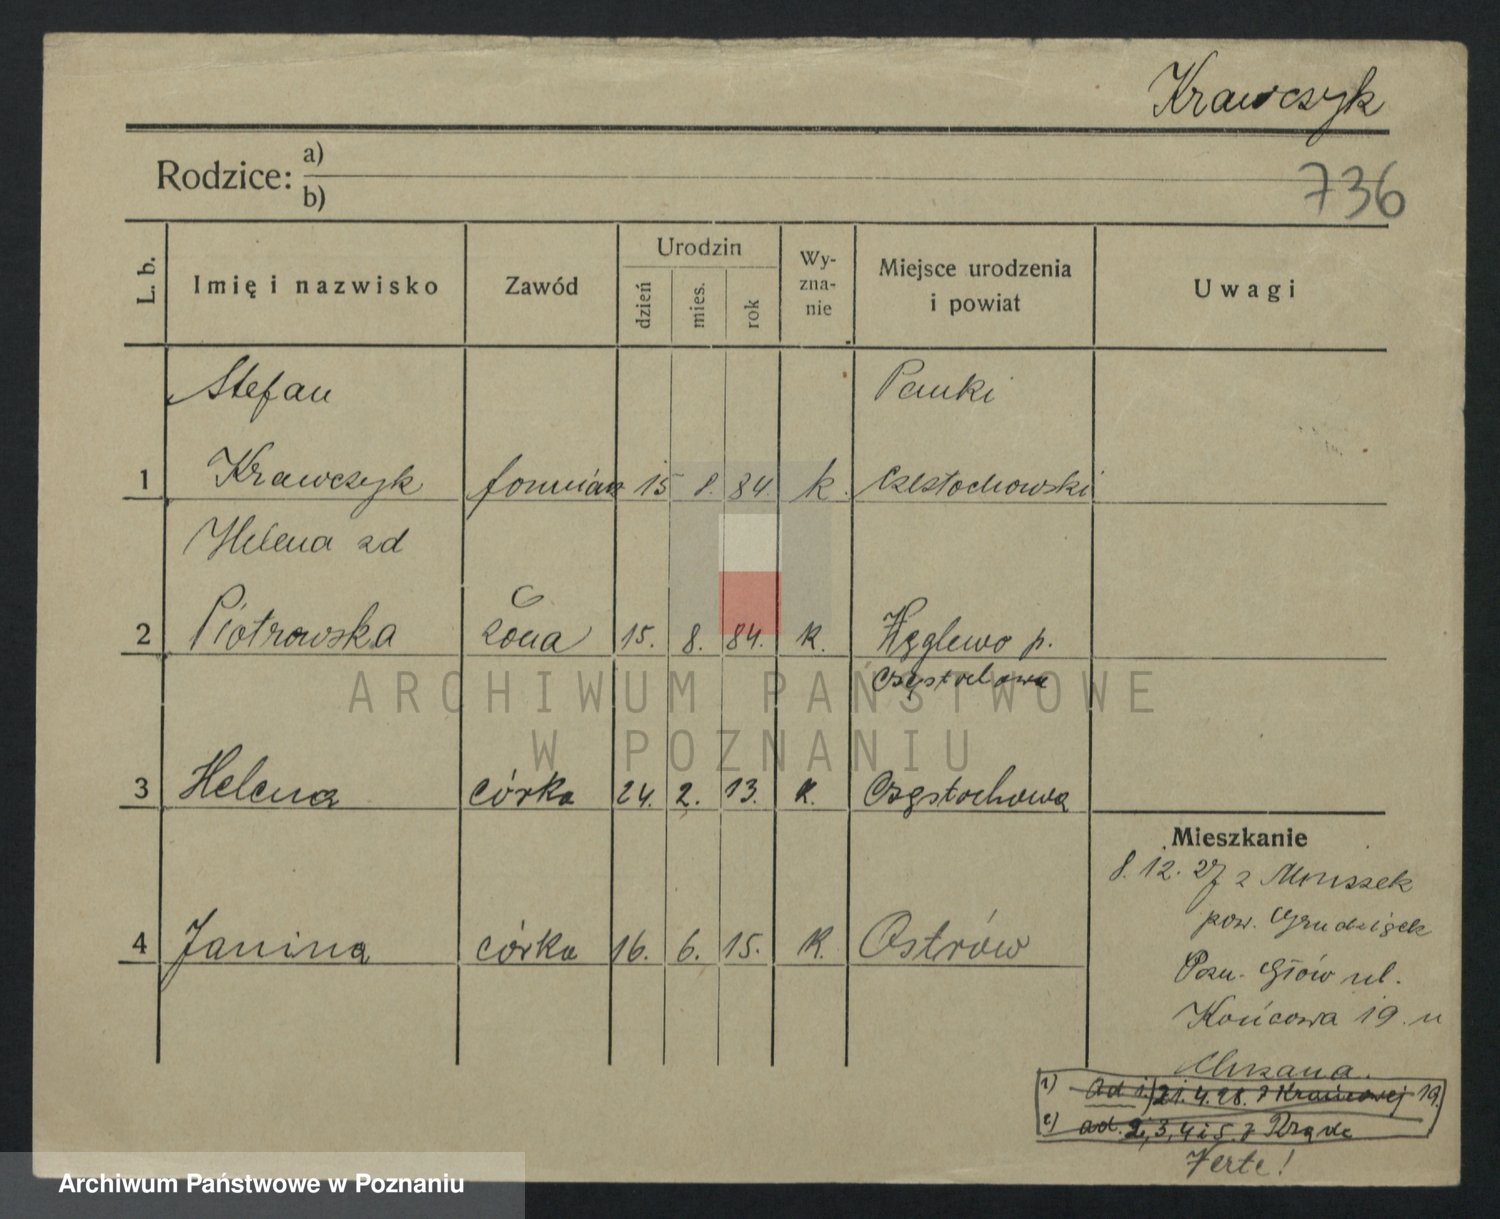 Krawczyk
Rodzice: a)
b)
736
L. b.
Imię i nazwisko
Zawód
Urodzin
dzień
mies.
rok
Wy-
zna-
nie
Miejsce urodzenia
i powiat
Uwagi
Stefan
Panki
1 Krawczyk 15 8. 84. k. Częstochowski
Helena zd
2 Piotrowska żona 15. 8. 84. k. Węglewo p.
Częstochowa
3 Helena córka 24. 2. 13. k. Częstochowa
4 Janina córka 16. 6. 15. k. Ostrów
Mieszkanie
8. 12. 27 z
pow. Grudziądz
Pozn. Głów ul.
Końcowa 19 u
1) Ad 1.) 21.4.28. 19.
2) ad. 2, 3, 4 i 5.
Verte!
ARCHIWUM PAŃSTWOWE
W POZNANIU
Archiwum Państwowe w Poznaniu